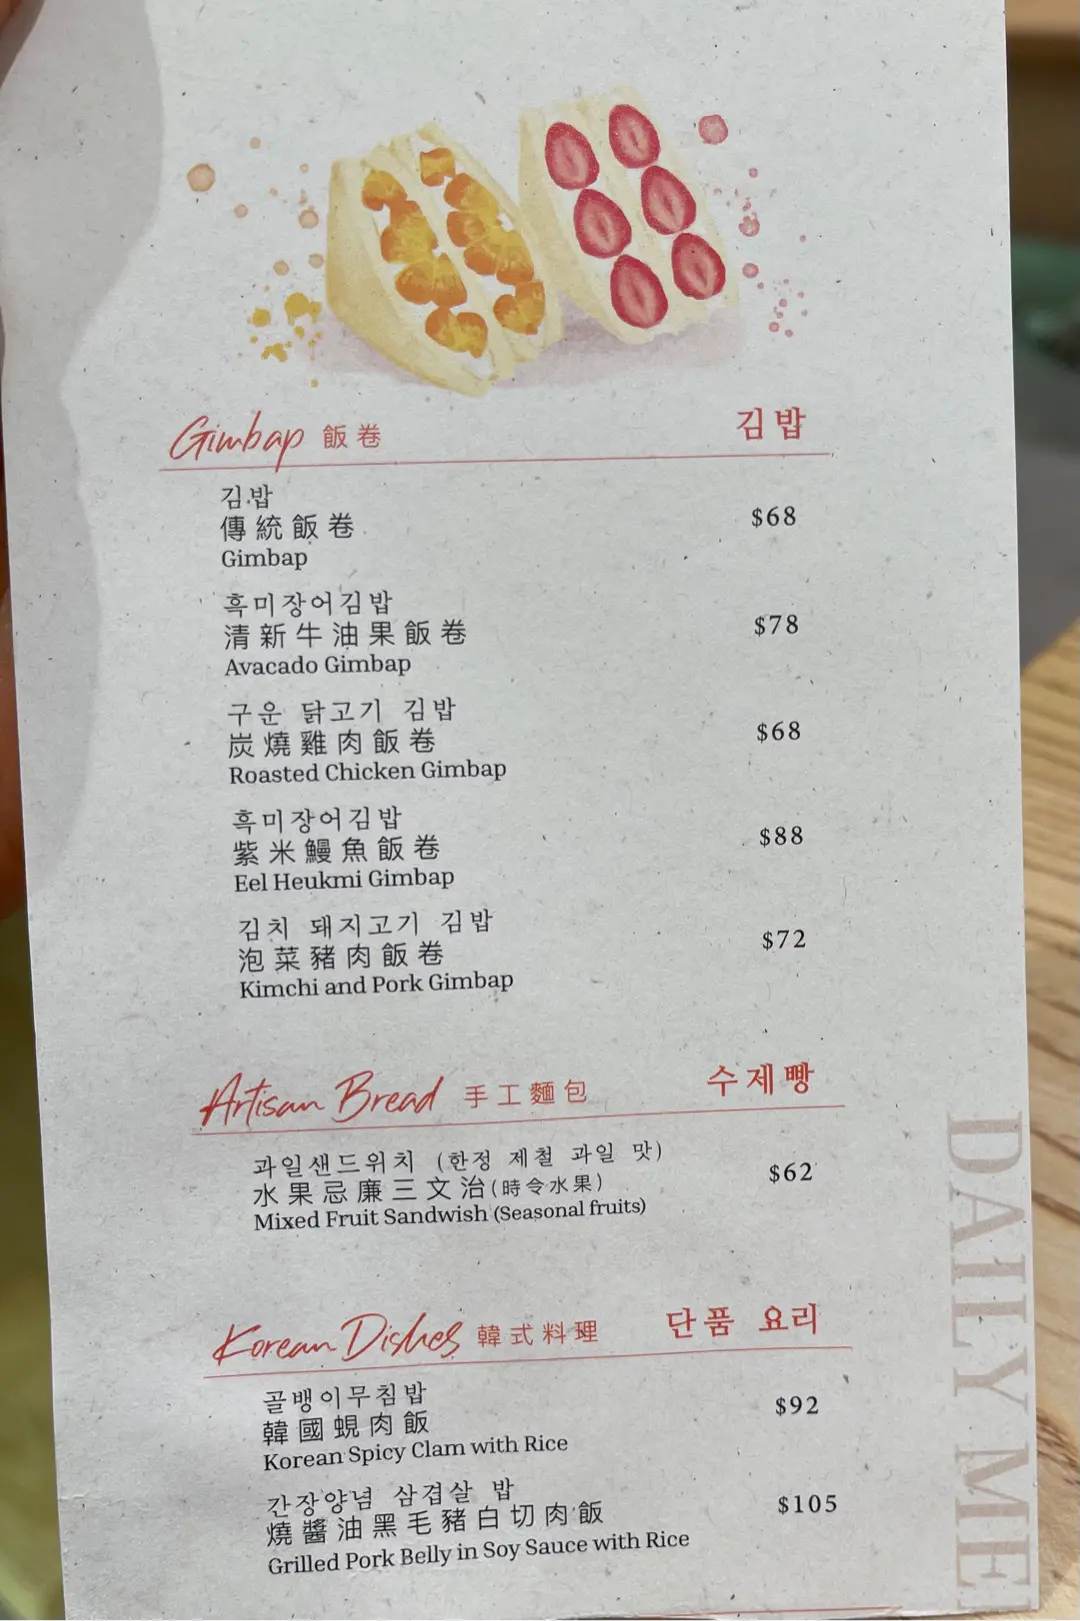 Gimbap 飯卷 김밥
김밥
傳統飯卷 $68
Gimbap
흑미장어김밥
清新牛油果飯卷 $78
Avacado Gimbap
구운 닭고기 김밥
炭燒雞肉飯卷 $68
Roasted Chicken Gimbap
흑미장어김밥
紫米鰻魚飯卷 $88
Eel Heukmi Gimbap
김치 돼지고기 김밥
泡菜豬肉飯卷 $72
Kimchi and Pork Gimbap
Artisan Bread 手工麵包 수제빵
과일샌드위치 (한정 제철 과일 맛)
水果忌廉三文治(時令水果) $62
Mixed Fruit Sandwish (Seasonal fruits)
Korean Dishes 韓式料理 단품 요리
골뱅이무침밥
韓國蜆肉飯 $92
Korean Spicy Clam with Rice
간장양념 삼겹살 밥
燒醬油黑毛豬白切肉飯 $105
Grilled Pork Belly in Soy Sauce with Rice
DAILY ME